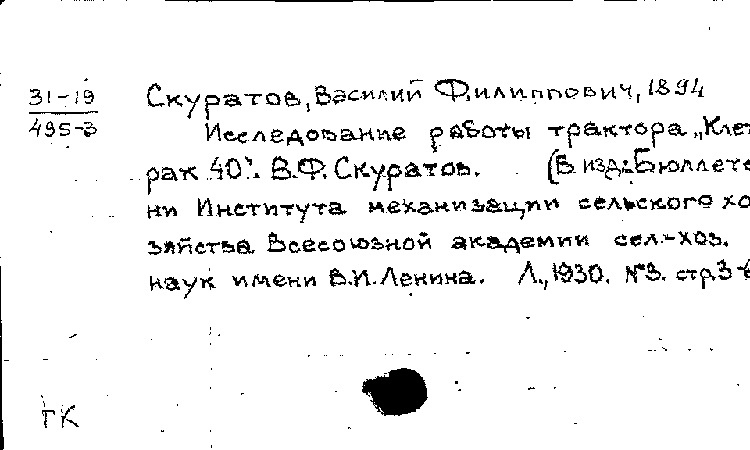 31-19
495-3
Скуратов, Василий Филиппович, 1894
Исследование работы трактора „Клет
рак 40". В.Ф. Скуратов. (В изд: Бюллете
ни Института механизации сельского хо
зяйства Всесоюзной академии сел-хоз.
наук имени В.И. Ленина. Л., 1930. №3. стр 3
ГК